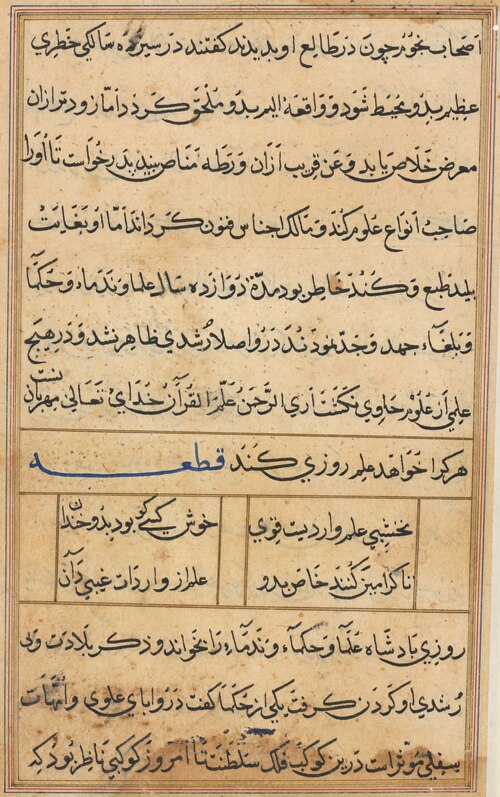 اصحاب نجوم چون در طالع او بدیدند گفتند در سیزده سالگی خطری
عظیم بدو محیط شود و واقعهٔ الیم بدو ملحق گردد اما زود تر ازان
معرض خلاص یابد و عن قریب ازان ورطه مناص بیند پدر خواست تا او را
صاحب انواع علوم کند و مالک اجناس فنون گرداند اما او بغایت
بلید طبع و کند خاطر بود مدة دوازده سال علما و ندماء و حکما
و بلغاء جهد و جد نمودند در و اصلا رشدی ظاهر نشد و در هیچ
علمی از علوم حاوی نگشت آری الرحمن علم القرآن خدای تعالی مهربان تست
هر کرا خواهد علم روزی کند قطعه
نخشبی علم واردیست قوی خوش کسی کو بود بدو خندان
تا کرا می کنند خاص بدو علم از واردات غیبی دان
روزی پادشاه علما و حکماء و ندماء را بخواند و ذکر بلادت و بی
رشدی او کردن گرفت یکی از حکما گفت در روایای علوی و امهات
سفلی مؤثرات درین کوکب فلک سلطنت تا امروز کوکبی ناظر بود که